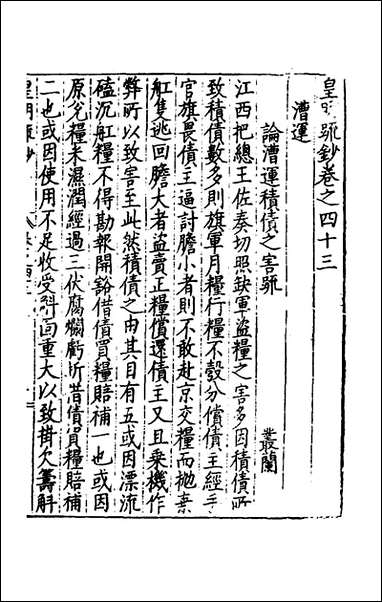 皇明疏鈔卷之四十三
漕運
論漕運積債之害疏 叢蘭
江西把總王佐奏切照缺軍盜糧之害多因積債所
致積債數多則旗軍月糧行糧不彀分償債主經手
官旗畏債主逼討膽小者則不敢赴京交糧而抛棄
舡隻逃回膽大者盜賣正糧償還債主又且乗機作
弊所以致害至此然積債之由其目有五或因漂流
磕沉舡糧不得勘報開豁借債買糧賠補一也或因
原兊糧米濕潤經過三伏腐爛虧折借債買糧賠補
二也或因使用不足收受斛面重大以致掛欠籌斛
皇明疏鈔 卷之四十三